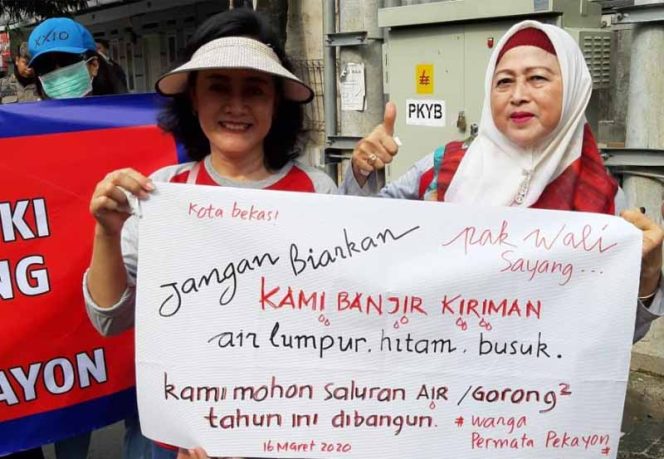 XXIO
KI
NG
AYON
PKYB
Kota bekasi
pak Wali
Sayang...
Jangan Biarkan
KAMI BANJIR KIRIMAN
air lumpur, hitam, busuk.
kami mohon Saluran AIR /Gorong²
tahun ini dibangun.
# warga
Permata Pekayon #
16 Maret 2020